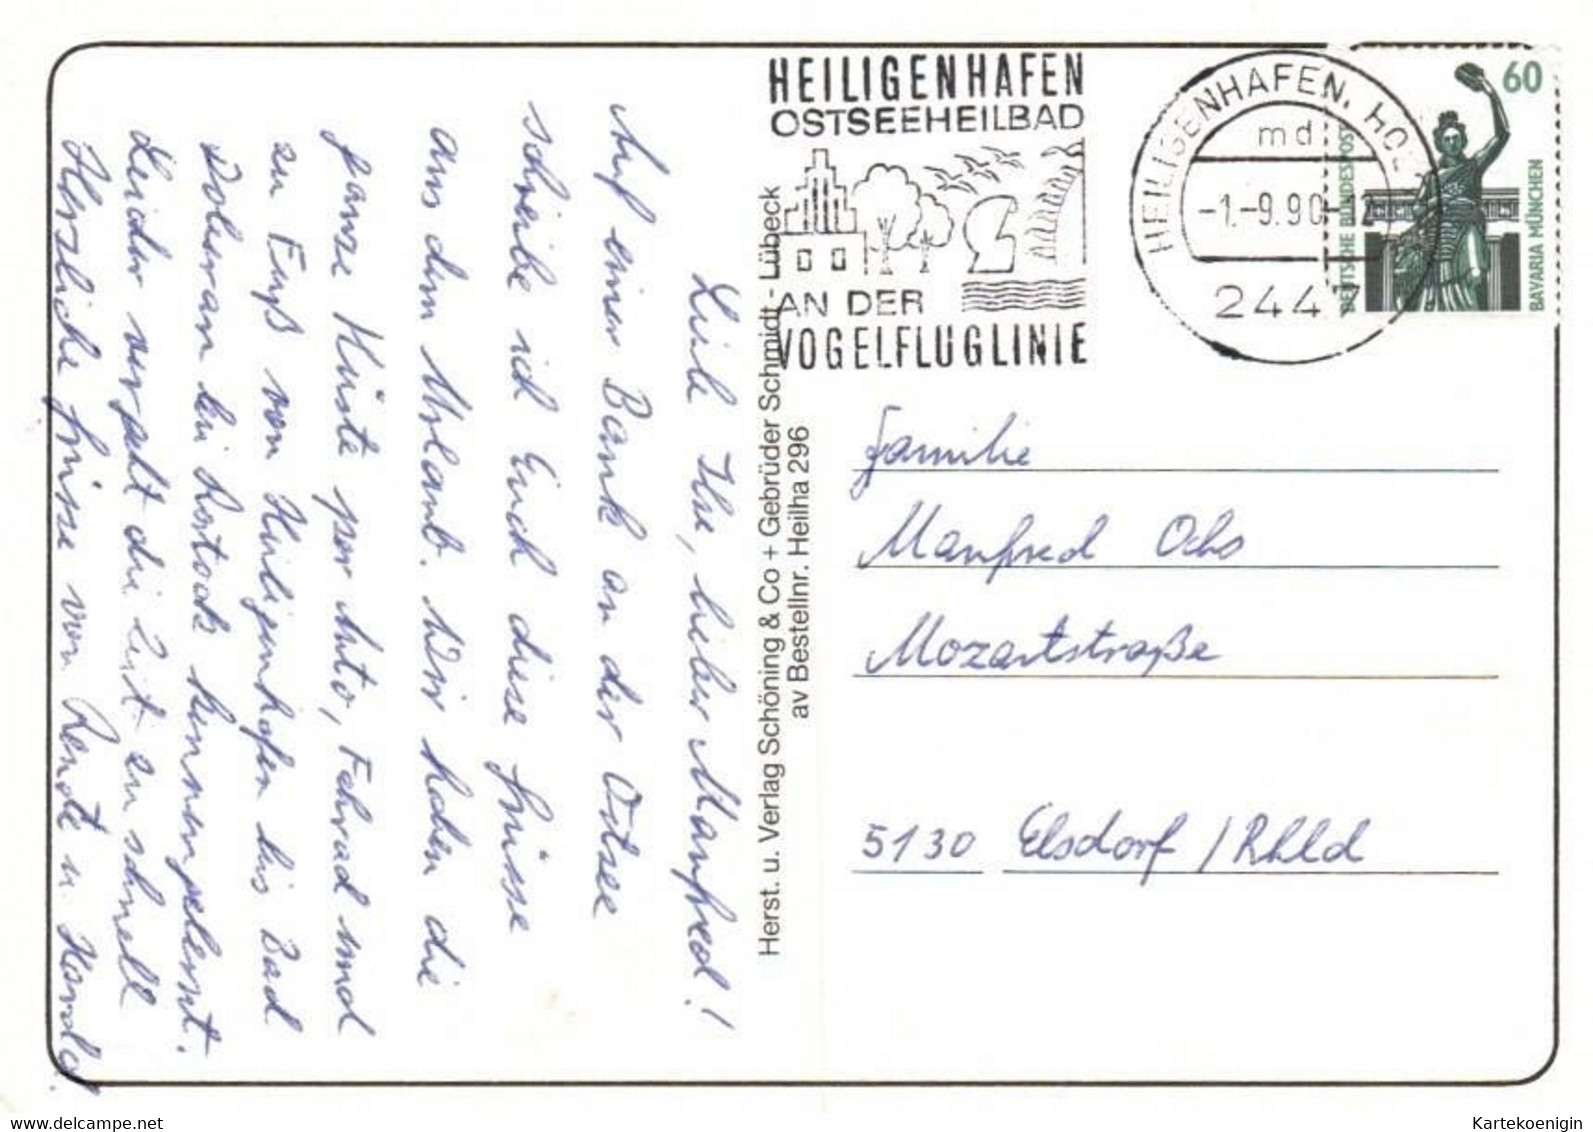 Liebe Ilse, lieber Manfred!
Auf einer Bank an der Ostsee
schreibe ich Euch diese Grüsse
aus dem Urlaub. Wir haben die
ganze Küste per Auto, Fahrrad und
zu Fuß von Heiligenhafen bis Bad
Doberan bei Rostock kennengelernt.
Leider vergeht die Zeit zu schnell
Herzliche Grüsse von Renate u. Harald.
Herst. u. Verlag Schöning & Co + Gebrüder Schmidt - Lübeck
av Bestellnr. Heilha 296
HEILIGENHAFEN
OSTSEEHEILBAD
AN DER
VOGELFLUGLINIE
HEILIGENHAFEN, HO
md
-1.-9.90-12
244
60
DEUTSCHE BUNDESPOST
BAVARIA MÜNCHEN
Familie
Manfred Ochs
Mozartstraße
5130 Elsdorf / Rhld
delcampe.net
Kartekoenigin